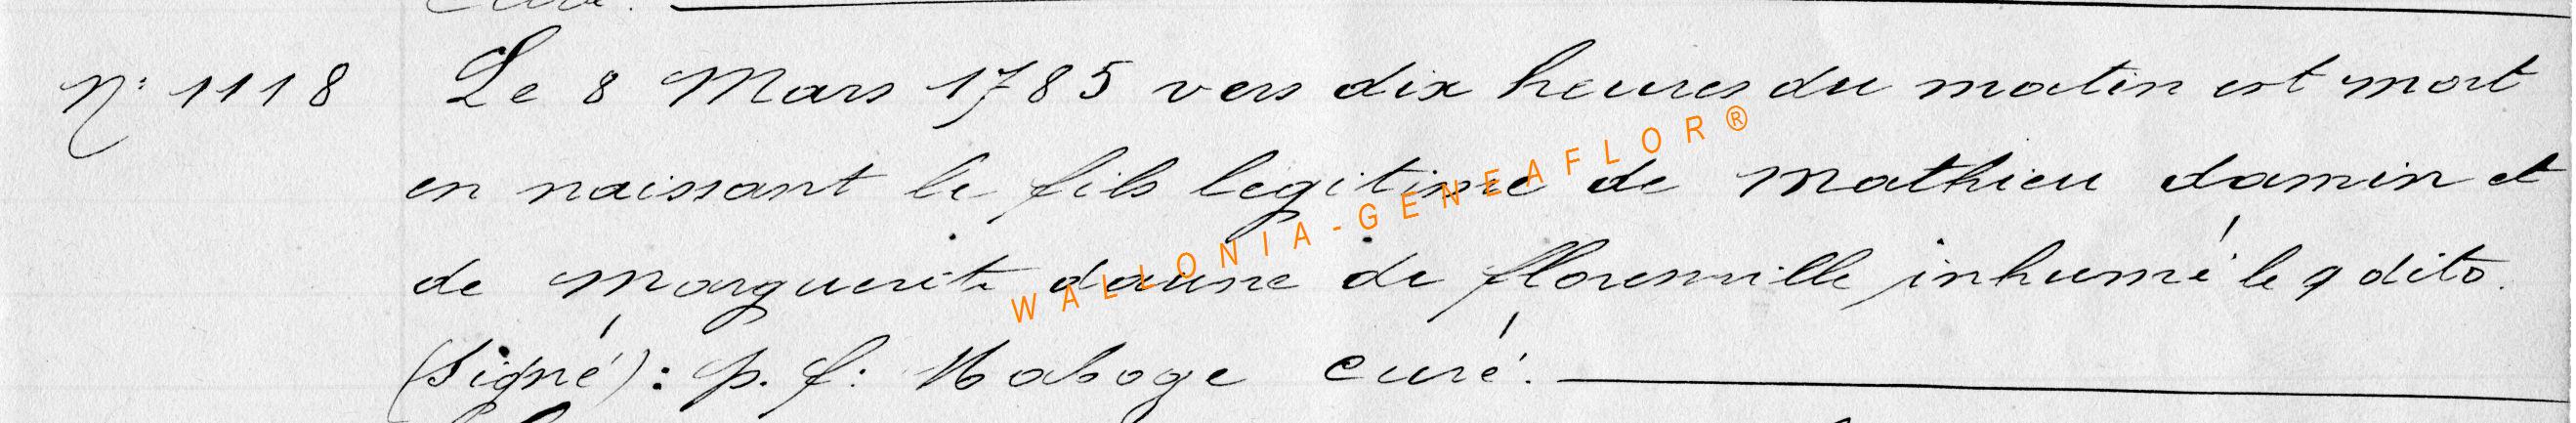 N° 1118 Le 8 Mars 1785 vers dix heures du matin est mort
en naissant le fils legitime de Mathieu damin et
de Marguerite daune de florenville inhumé le 9 dito.
(signé) : p. f : Haboge Curé.
WALLONIA-GENEAFLOR®